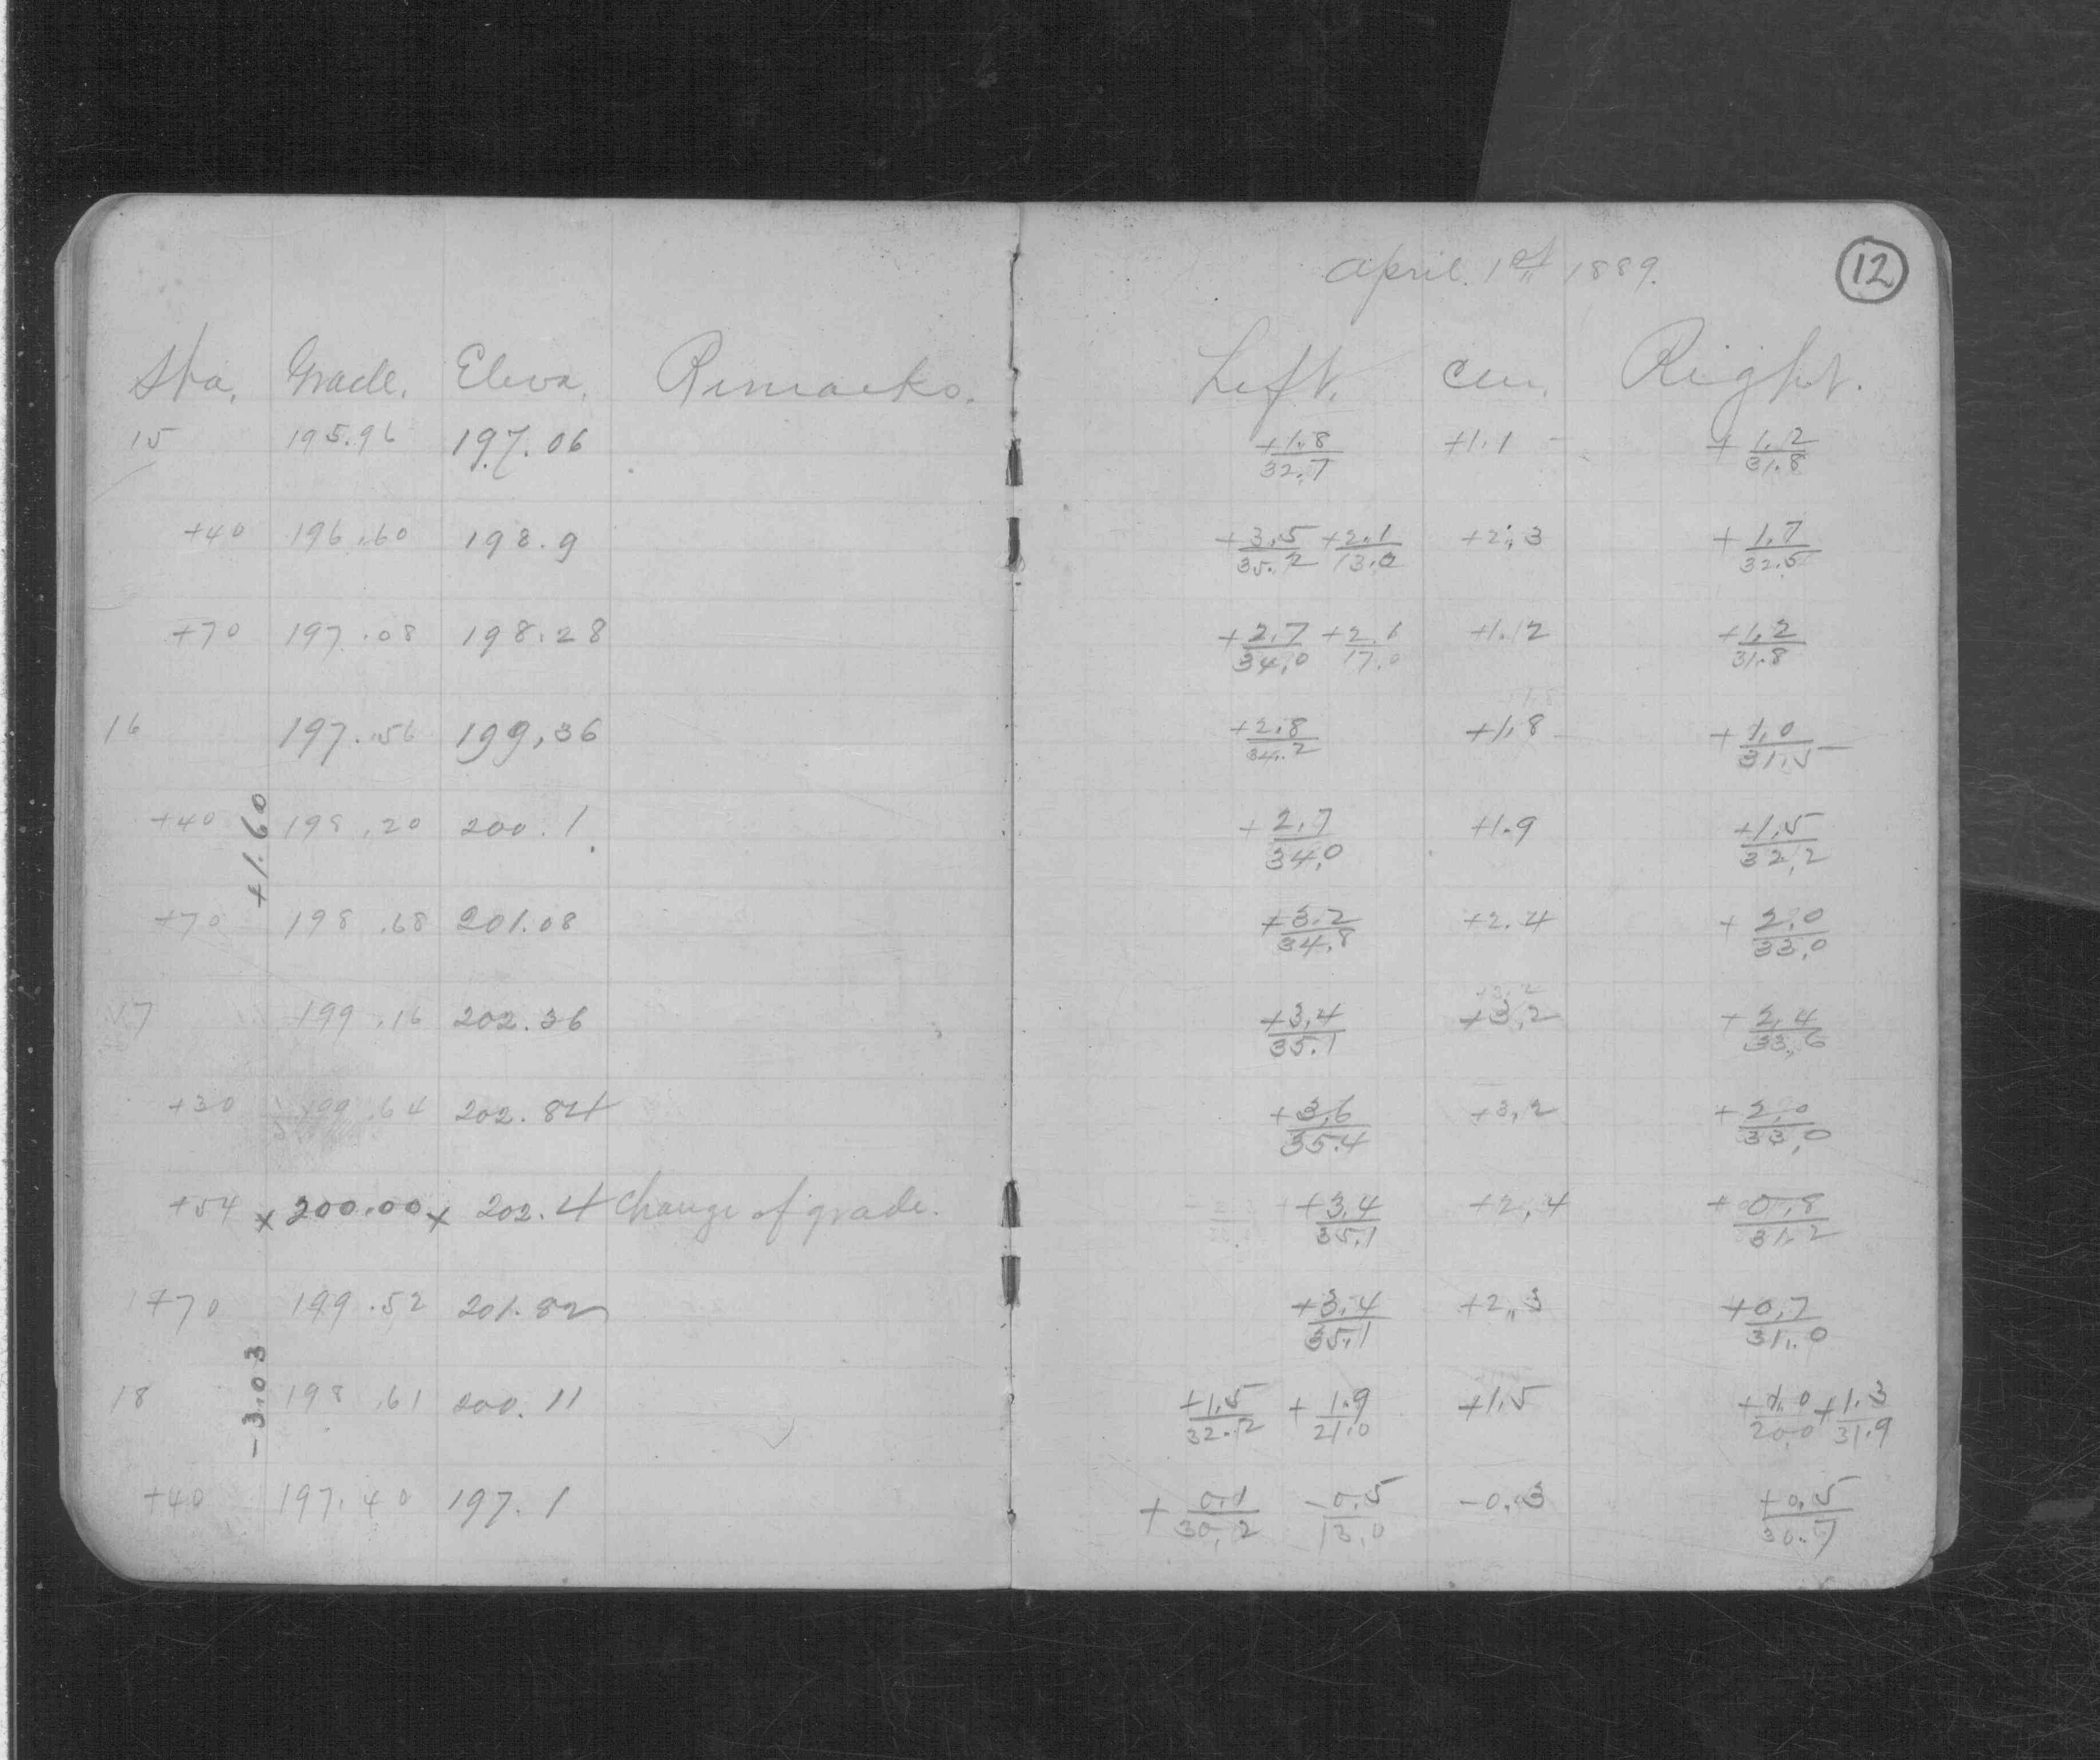 April 1st 1889. 12
Sta. Grade. Eleva. Remarks. Left. Cen. Right.
15 195.96 197.06 +1.8/32.7 +1.1 +1.2/31.8
+40 196.60 198.9 +3.5/35.2 +2.1/13.0 +2.3 +1.7/32.5
+70 197.08 198.28 +2.7/34.0 +2.1/17.0 +1.2 +1.2/31.8
16 197.56 199.36 +2.8/34.2 +1.8 +1.0/31.5
+1.60
+40 198.20 200.1 +2.7/34.0 +1.9 +1.5/32.2
+70 198.68 201.08 +3.2/34.8 +2.4 +2.0/33.0
17 199.16 202.36 +3.4/35.1 +3.2 +2.4/33.6
+30 199.64 202.84 +3.6/35.4 +3.2 +2.0/33.0
+54 x 200.00 x 202.4 Change of grade. +3.4/35.1 +2.4 +0.8/31.2
+70 199.52 201.82 +3.4/35.1 +2.3 +0.7/31.0
-3.03
18 198.61 200.11 +1.5/32.2 +1.9/21.0 +1.5 +1.0/20.0 +1.3/31.9
+40 197.40 197.1 +0.1/30.2 -0.5/13.0 -0.3 +0.5/30.7